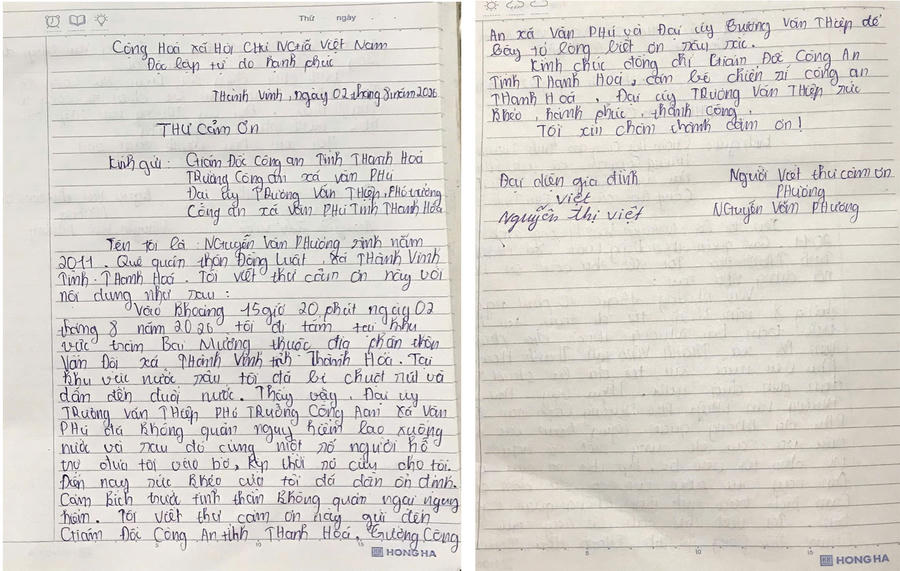 Thứ ngày
Cộng Hoà xã Hội Chủ NGhĩã Việt Nam
Độc lập tự do hạnh phúc
THành Vinh, ngày 02 tháng 8 năm 2026
THƯ Cảm Ơn
Kính gửi: Giám Đốc Công an Tỉnh THanh Hoá
TRưởng Công an xã Văn PHú
Đại úy TRương Văn THiệp, PHó trưởng
Công an xã Văn PHú Tỉnh THanh Hoá
Tên tôi là: NGuyễn Văn PHương sinh năm
2011. Quê quán thôn Đồng Luật, xã THành Vinh
Tỉnh THanh Hoá. Tôi viết thư cảm ơn này với
nôi dung như sau:
Vào khoảng 15 giờ 20 phút ngày 02
tháng 8 năm 2026 tôi đi tắm tại khu
vực tràm Bai Mường thuộc địa phận thôn
Vân Đội xã THành Vinh tỉnh THanh Hoá. Tại
khu vực nước sâu tôi đã bị chuột rút và
dẫn đến đuối nước. Thấy vậy, Đại úy
TRương Văn THiệp PHó TRưởng Công An xã Văn
PHú đã không quản nguy hiểm lao xuống
nước và sau đó cùng một số người hỗ
trợ đưa tôi vào bờ, kịp thời sơ cứu cho tôi.
Đến nay sức khỏe của tôi đã dần ổn định.
Cảm kích trước tinh thần không quản ngại nguy
hiểm. Tôi viết thư cảm ơn này gửi đến
Giám Đốc Công An tỉnh THanh Hoá, Trưởng Công
HONG HA
An xã Văn PHú và Đại úy Trương Văn THiệp để
bày tỏ lòng biết ơn sâu sắc.
Kính chúc đồng chí Giám Đốc Công An
Tỉnh THanh Hoá, cán bộ chiến sĩ công an
THanh Hoá, Đại úy TRương Văn THiệp sức
khỏe, hạnh phúc, thành công.
Tôi xin chân thành cảm ơn!
Đại diện gia đình
Việt
Nguyễn Thị Việt
Người Viết thư cảm ơn
PHương
NGuyễn Văn PHương
HONG HA